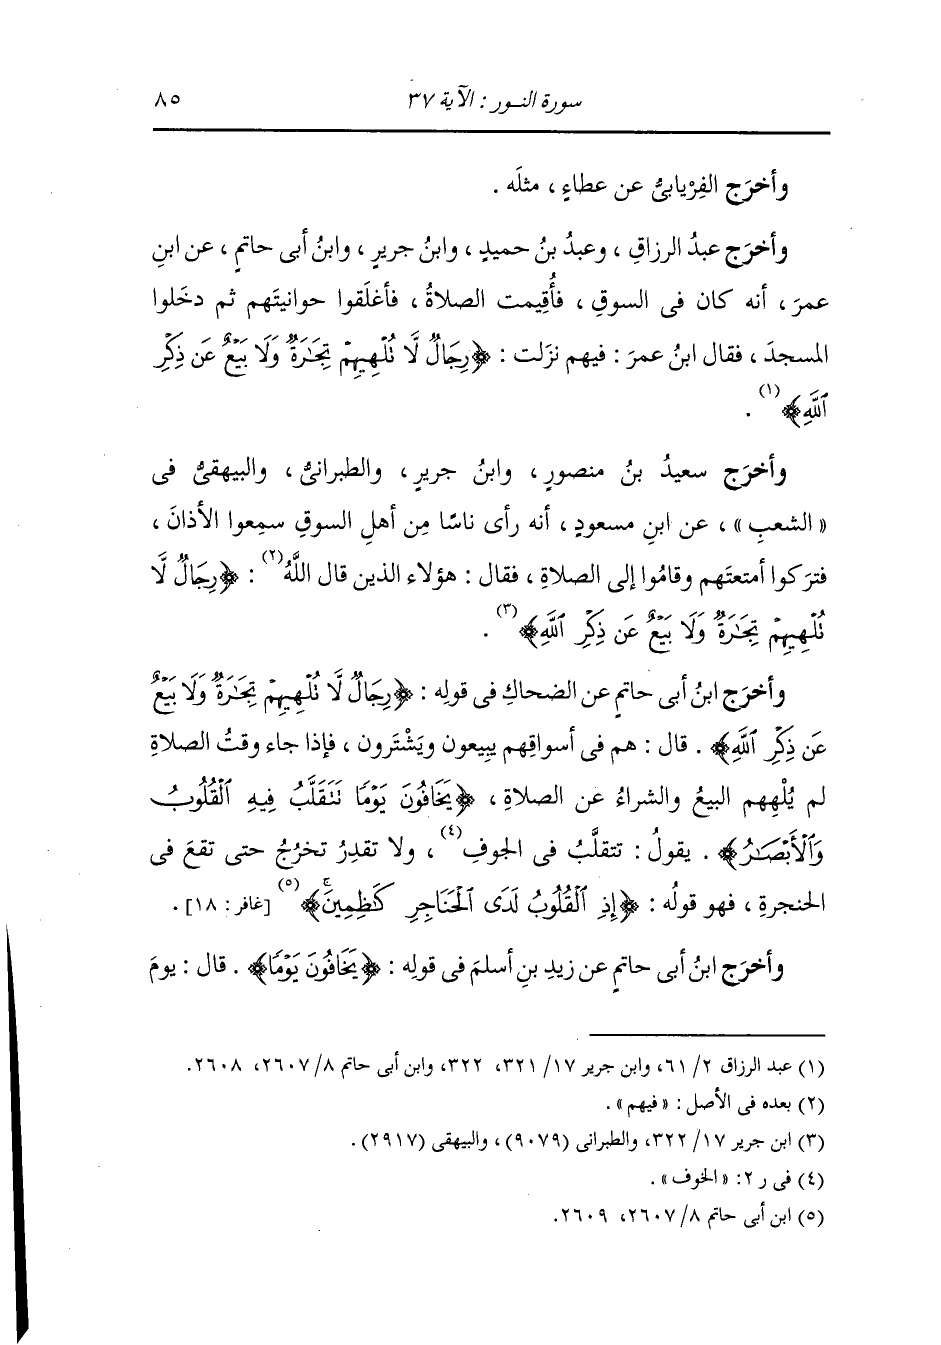 سورة النور : الآية ٣٧ ٨٥
وأخرَج الفِرْيابىُّ عن عطاءٍ ، مثلَه .
وأخرَج عبدُ الرزاقِ ، وعبدُ بنُ حميدٍ ، وابنُ جريرٍ ، وابنُ أبى حاتمٍ ، عن ابنِ
عمرَ ، أنه كان فى السوقِ ، فأُقِيمت الصلاةُ ، فأغلَقوا حوانيتَهم ثم دخَلوا
المسجدَ ، فقال ابنُ عمرَ : فيهم نزَلت : ﴿رِجَالٌ لَّا تُلْهِيهِمْ تِجَٰرَةٌ وَلَا بَيْعٌ عَن ذِكْرِ
ٱللَّهِ﴾(١) .
وأخرَج سعيدُ بنُ منصورٍ ، وابنُ جريرٍ ، والطبرانىُّ ، والبيهقىُّ فى
« الشعبِ » ، عن ابنِ مسعودٍ ، أنه رأى ناسًا مِن أهلِ السوقِ سمِعوا الأذانَ ،
فترَكوا أمتعتَهم وقامُوا إلى الصلاةِ ، فقال : هؤلاء الذين قال اللَّهُ(٢) : ﴿رِجَالٌ لَّا
تُلْهِيهِمْ تِجَٰرَةٌ وَلَا بَيْعٌ عَن ذِكْرِ ٱللَّهِ﴾(٣) .
وأخرَج ابنُ أبى حاتمٍ عن الضحاكِ فى قولِه : ﴿رِجَالٌ لَّا تُلْهِيهِمْ تِجَٰرَةٌ وَلَا بَيْعٌ
عَن ذِكْرِ ٱللَّهِ﴾ . قال : هم فى أسواقِهم يبِيعون ويَشْتَرون ، فإذا جاء وقتُ الصلاةِ
لم يُلْهِهم البيعُ والشراءُ عن الصلاةِ ، ﴿يَخَافُونَ يَوْمًا تَتَقَلَّبُ فِيهِ ٱلْقُلُوبُ
وَٱلْأَبْصَٰرُ﴾ . يقولُ : تتقلَّبُ فى الجوفِ(٤) ، ولا تقدِرُ تخرُجُ حتى تقعَ فى
الحنجرةِ ، فهو قولُه : ﴿إِذِ ٱلْقُلُوبُ لَدَى ٱلْحَنَاجِرِ كَٰظِمِينَۚ﴾(٥) [غافر : ١٨] .
وأخرَج ابنُ أبى حاتمٍ عن زيدِ بنِ أسلمَ فى قولِه : ﴿يَخَافُونَ يَوْمًا﴾ . قال : يومَ
(١) عبد الرزاق ٢/ ٦١، وابن جرير ١٧/ ٣٢١، ٣٢٢، وابن أبى حاتم ٨/ ٢٦٠٧، ٢٦٠٨.
(٢) بعده فى الأصل : « فيهم » .
(٣) ابن جرير ١٧/ ٣٢٢، والطبرانى (٩٠٧٩) ، والبيهقى (٢٩١٧) .
(٤) فى ر ٢: « الخوف » .
(٥) ابن أبى حاتم ٨/ ٢٦٠٧، ٢٦٠٩.